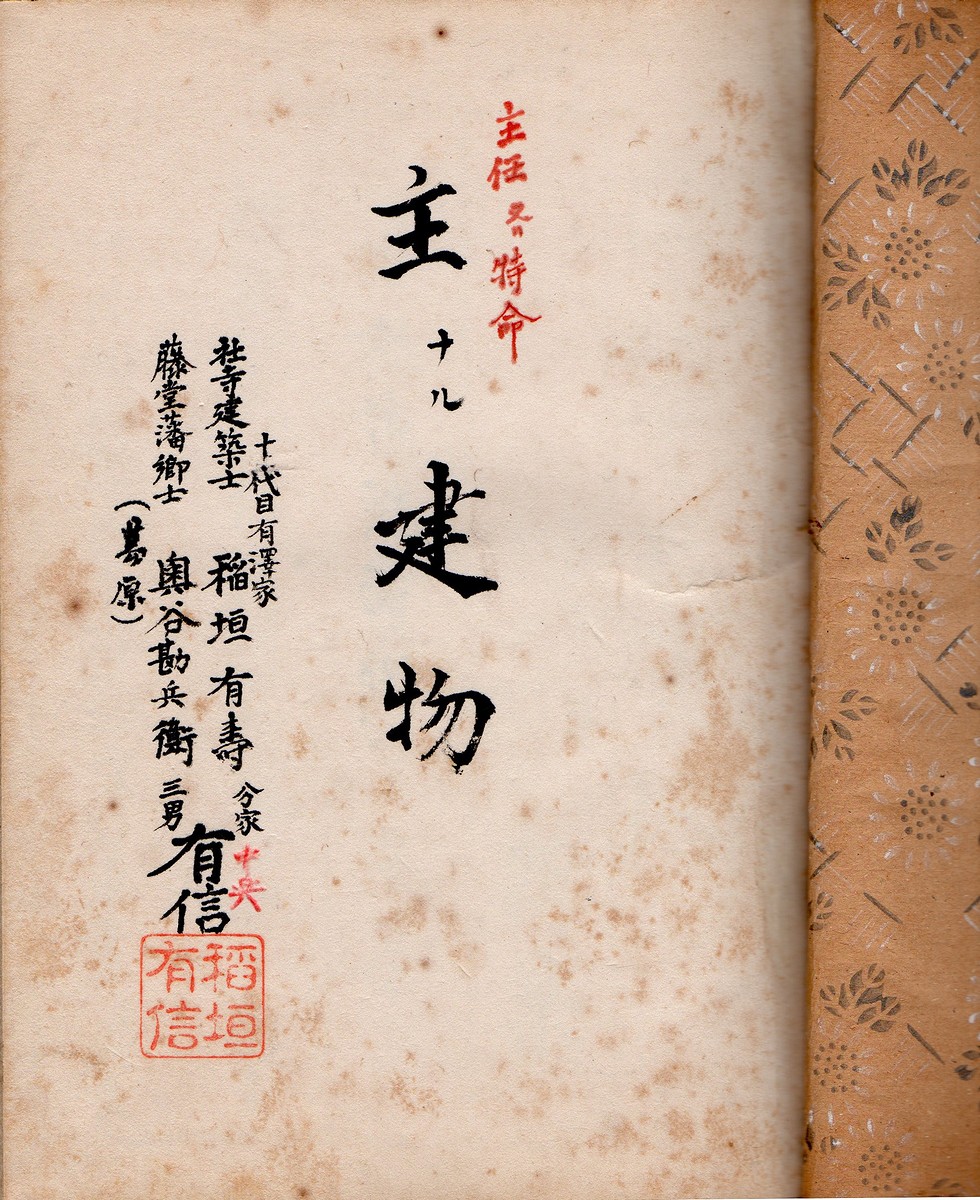 主任又ハ特命
主ナル建物
十代目有澤家
社寺建築士 稲垣有壽 分家
中央
藤堂藩郷士 奥谷勘兵衛 三男
有信
(葛原)
稲垣
有信